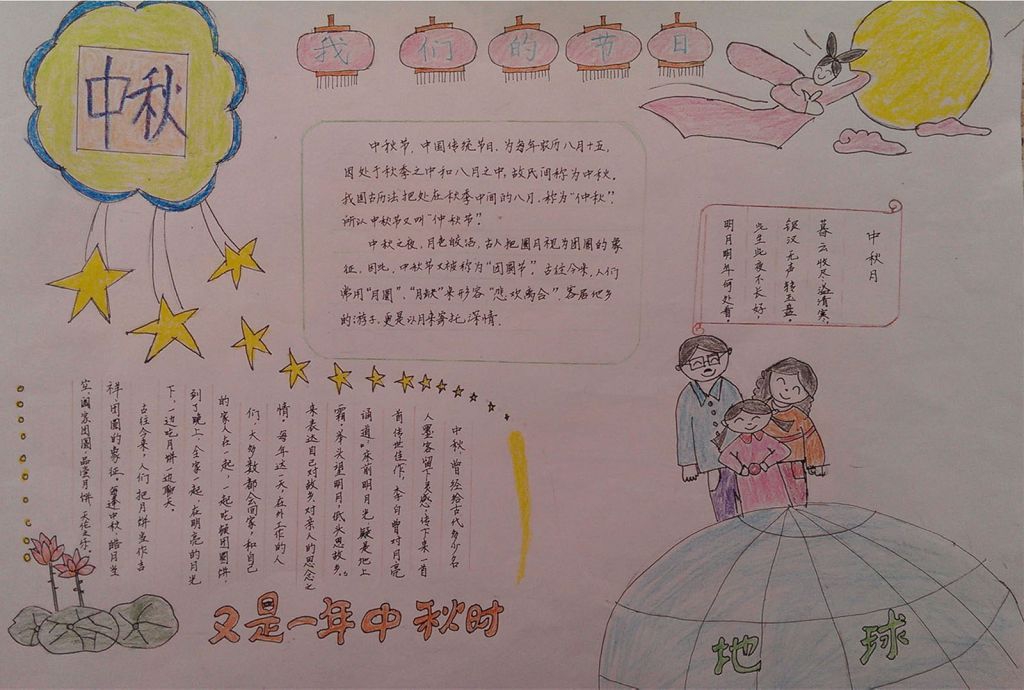 中秋
我们的节日
中秋节，中国传统节日，为每年农历八月十五，
因处于秋季之中和八月之中，故民间称为中秋。
我国古历法把处在秋季中间的八月，称为“仲秋”，
所以中秋节又叫“仲秋节”。
中秋之夜，月色皎洁，古人把圆月视为团圆的象
征，因此，中秋节又被称为“团圆节”。古往今来，人们
常用“月圆”、“月缺”来形容“悲欢离合”，客居他乡
的游子，更是以月来寄托深情。
中秋月
暮云收尽溢清寒，
银汉无声转玉盘。
此生此夜不长好，
明月明年何处看。
中秋曾经给古代多少名
人墨客留下灵感，传下来一首
首传世佳作，李白曾对月亮
诵道“床前明月光，疑是地上
霜。举头望明月，低头思故乡”。
来表达自己对故乡，对亲人的思念之
情。每年这一天，在外工作的人
们，大多数都会回家和自己
的家人在一起，一起吃顿团圆饼
到了晚上，全家一起，在明亮的月光
下，一边吃月饼一边聊天。
古往今来，人们把月饼当作吉
祥团圆的象征。每逢中秋，皓月当
空，阖家团圆，品尝月饼，天伦之乐。
又是一年中秋时
地球